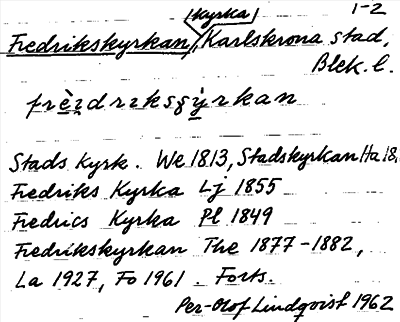 kyrka 1-2
Fredrikskyrkan, Karlskrona stad,
Blek. l.
Stads Kyrk. We 1813, Stadskyrkan Ha 18
Fredriks Kyrka Lj 1855
Fredrics Kyrka Pl 1849
Fredrikskyrkan The 1877-1882,
La 1927, Fo 1961. Forts.
Per-Olof Lindqvist 1962